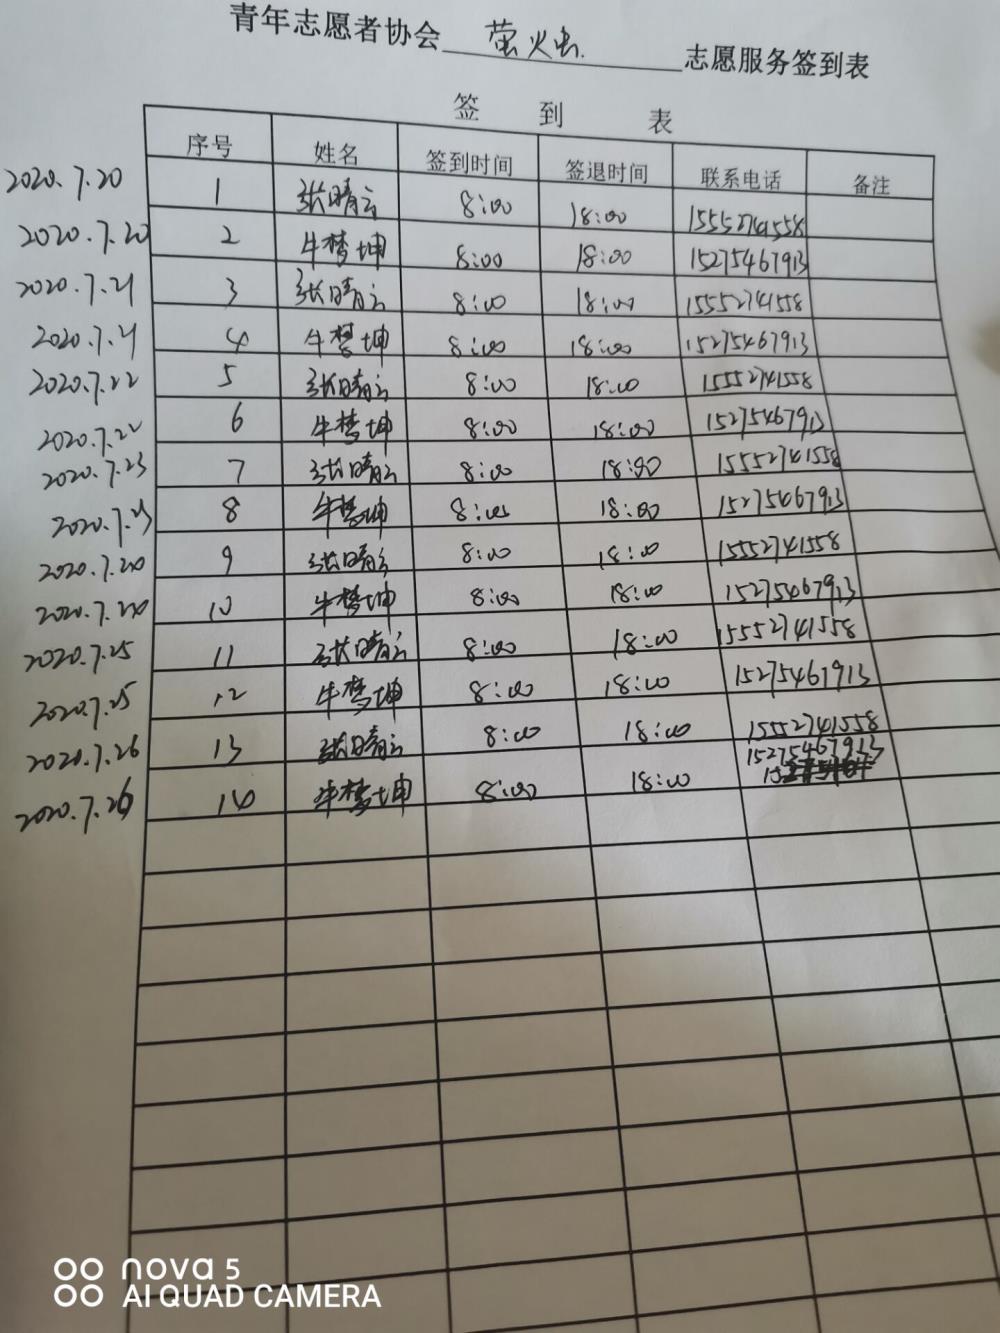 青年志愿者协会 萤火虫 志愿服务签到表
签 到 表
序号 姓名 签到时间 签退时间 联系电话 备注
2020.7.20 1 张晴云 8:00 18:00 15552741558
2020.7.20 2 牛梦坤 8:00 18:00 15275467913
2020.7.21 3 张晴云 8:00 18:00 15552741558
2020.7.21 4 牛梦坤 8:00 18:00 15275467913
2020.7.22 5 张晴云 8:00 18:00 15552741558
2020.7.22 6 牛梦坤 8:00 18:00 15275467913
2020.7.23 7 张晴云 8:00 18:00 15552741558
2020.7.23 8 牛梦坤 8:00 18:00 15275467913
2020.7.24 9 张晴云 8:00 18:00 15552741558
2020.7.24 10 牛梦坤 8:00 18:00 15275467913
2020.7.25 11 张晴云 8:00 18:00 15552741558
2020.7.25 12 牛梦坤 8:00 18:00 15275467913
2020.7.26 13 张晴云 8:00 18:00 15552741558
2020.7.26 14 牛梦坤 8:00 18:00 15275467913
nova 5
AI QUAD CAMERA